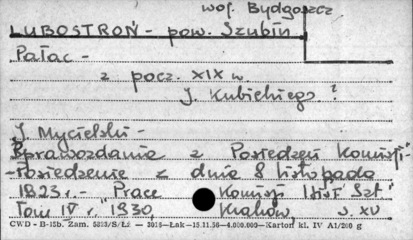 woj. Bydgoszcz
LUBOSTROŃ - pow. Szubin
Pałac -
z pocz. XIX w.
J. Kubickiego?
J. Mycielski -
Sprawozdania z Posiedzeń Komisji"
- Posiedzenie z dnia 8 listopada
1823 r. - Prace Komisji Hist Szt"
Tom IV r. 1930, Kraków, s. XV
CWD - B-15b. Zam. 5323/S/Łź — 3016—Łak—15.11.50—4.000.000—Karton kl. IV A1/200 g